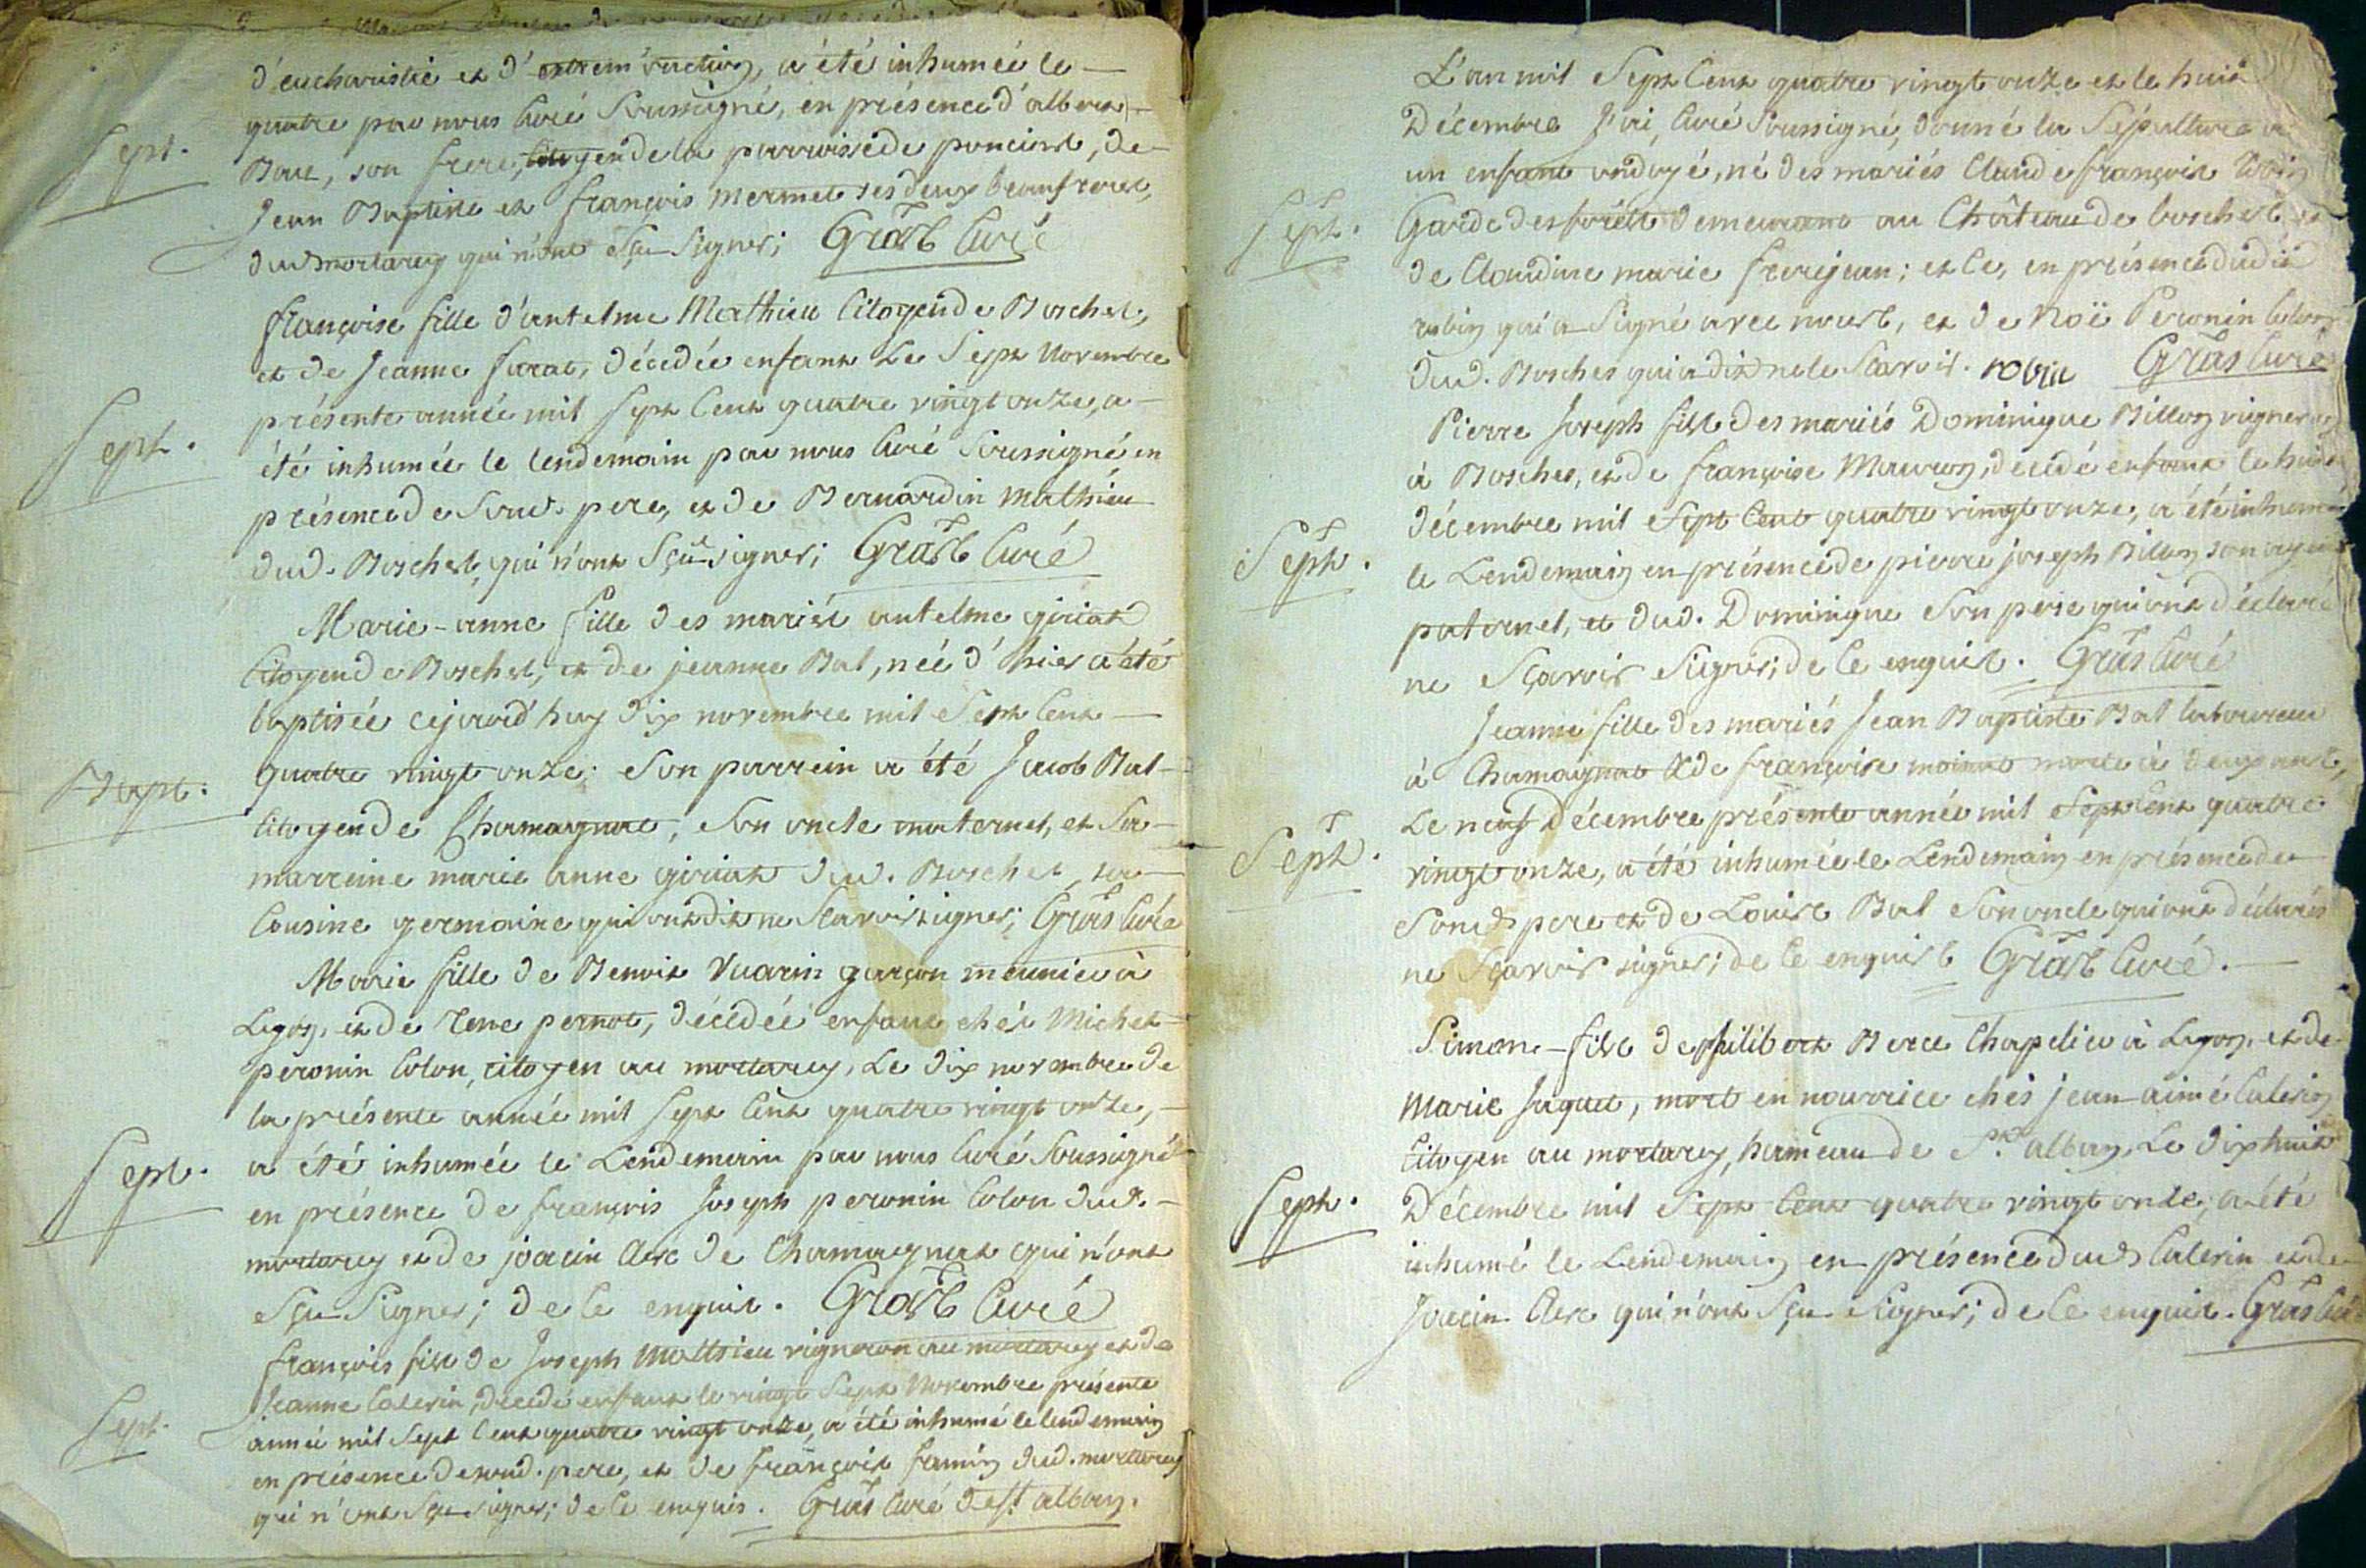 d'eucharistie et d'extrem'onction, a été inhumée le
quatre par nous Curé Soussigné, en présence d'albert
Sept.
son frere, Citoyen de la parroisse de poncieux, de
Jean Baptiste et françois mermet ses deux beaufreres,
dud mortarey qui n'ont sçu signer; Gras Curé
françoise fille d'antelme Mathieu Citoyen de Boches,
et de Jeanne decedée enfant Le Sept Novembre
présente année mil Sept Cent quatre vingt onze, a
Sept.
été inhumée le lendemain par nous Curé Soussigné en
présence de Sond. pere, et de Bernardin Mathieu
dud. Boches, qui n'ont Sçu signer; Gras Curé
Marie-anne fille des mariés antelme giriat
Citoyen de Boches, et de jeanne Bal, née d'hier a été
baptisée cejourd'huy dix novembre mil Sept Cent
Bapt.
quatre vingt onze; Son parrein a été Jacob Bal
Citoyen de Chamagnat, Son oncle maternel, et Sa
marreine marie anne giriat dud. Boches, sa
Cousine germaine qui ont dit ne Scavoir signer; Gras Curé
Marie fille de Benoit Vuarin garçon meunier à
Lyon, et de Rene pernot, décédée enfant chés Michel
peronin Colon, citoyen au mortarey, Le dix novembre de
la présente année mil Sept Cent quatre vingt onze,
Sept.
a été inhumée le Lendemain par nous Curé Soussigné
en présence de françois Joseph peronin Colon dud.
mortarey et de joacin Clerc de Chamagnat qui n'ont
Sçu Signer; de Ce enquis. Gras Curé
françois fils de Joseph Mathieu vigneron au mortarey et de
Jeanne Calerin, decedé enfant le vingt Sept Novembre présente
Sept.
année mil Sept Cent quatre vingt onze, a été inhumé le lendemain
en présence de sond. pere, et de françois framin dud. mortarey
qui n'ont Sçu signer; de Ce enquis. Gras Curé de St. alban.
L'an mil Sept Cent quatre vingt onze et le huit
Décembre J'ai, Curé Soussigné, donné la Sépulture a
un enfant ondoyé, né des mariés Claude françois Robin
Sept.
Garde des forêts demeurant au Château de boches et
de Claudine marie frerejean; et ce, en présence dudit
robin qui a Signé avec nous, et de Noë Peronin
dud. Boches qui a dit ne le Scavoir. robin Gras Curé
Pierre Joseph fils des mariés Dominique Billon vigneron
à Boches, et de françoise Mauron, decedé enfant le huit
décembre mil Sept Cent quatre vingt onze, a été inhumé
Sept.
le Lendemain en présence de pierre joseph Billon son ayeul
paternel, et dud. Dominique Son pere qui ont déclaré
ne Sçavoir Signer; de Ce enquis. Gras Curé
Jeanne fille des mariés Jean Baptiste Bal laboureur
à Chamagnat & de françoise morte à deux ans,
Le neuf Décembre présente année mil Sept Cent quatre
Sept.
vingt onze, a été inhumée le Lendemain en présence de
Sond pere et de Louis Bal Son oncle qui ont déclarés
ne Sçavoir signer; de Ce enquis Gras Curé.
Simon fils de philibert Chapelier à Lyon, et de
Marie Jaquet, mort en nourrice chés jean-aimé Calerin
Citoyen au mortarey, hameau de St. alban, Le dix huit
Sept.
Décembre mil Sept Cent quatre vingt onze, a été
inhumé le Lendemain en présence dud Calerin et de
Joacin Clerc qui n'ont Sçu Signer; de Ce enquis. Gras Curé